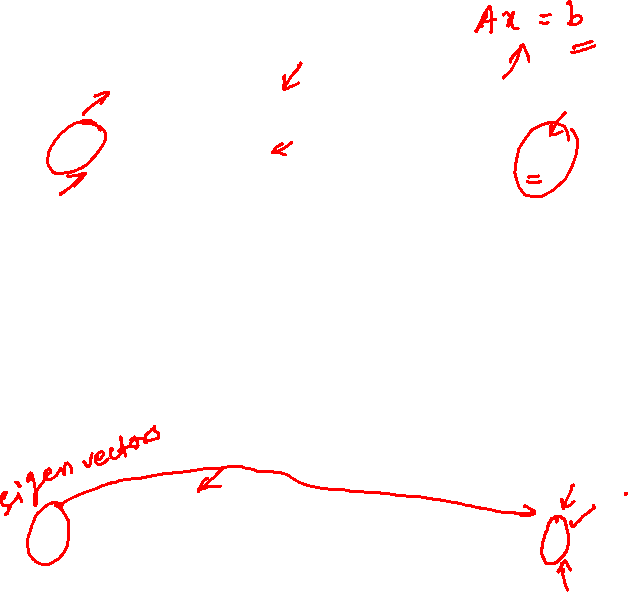 Ax = b
eigen vectors